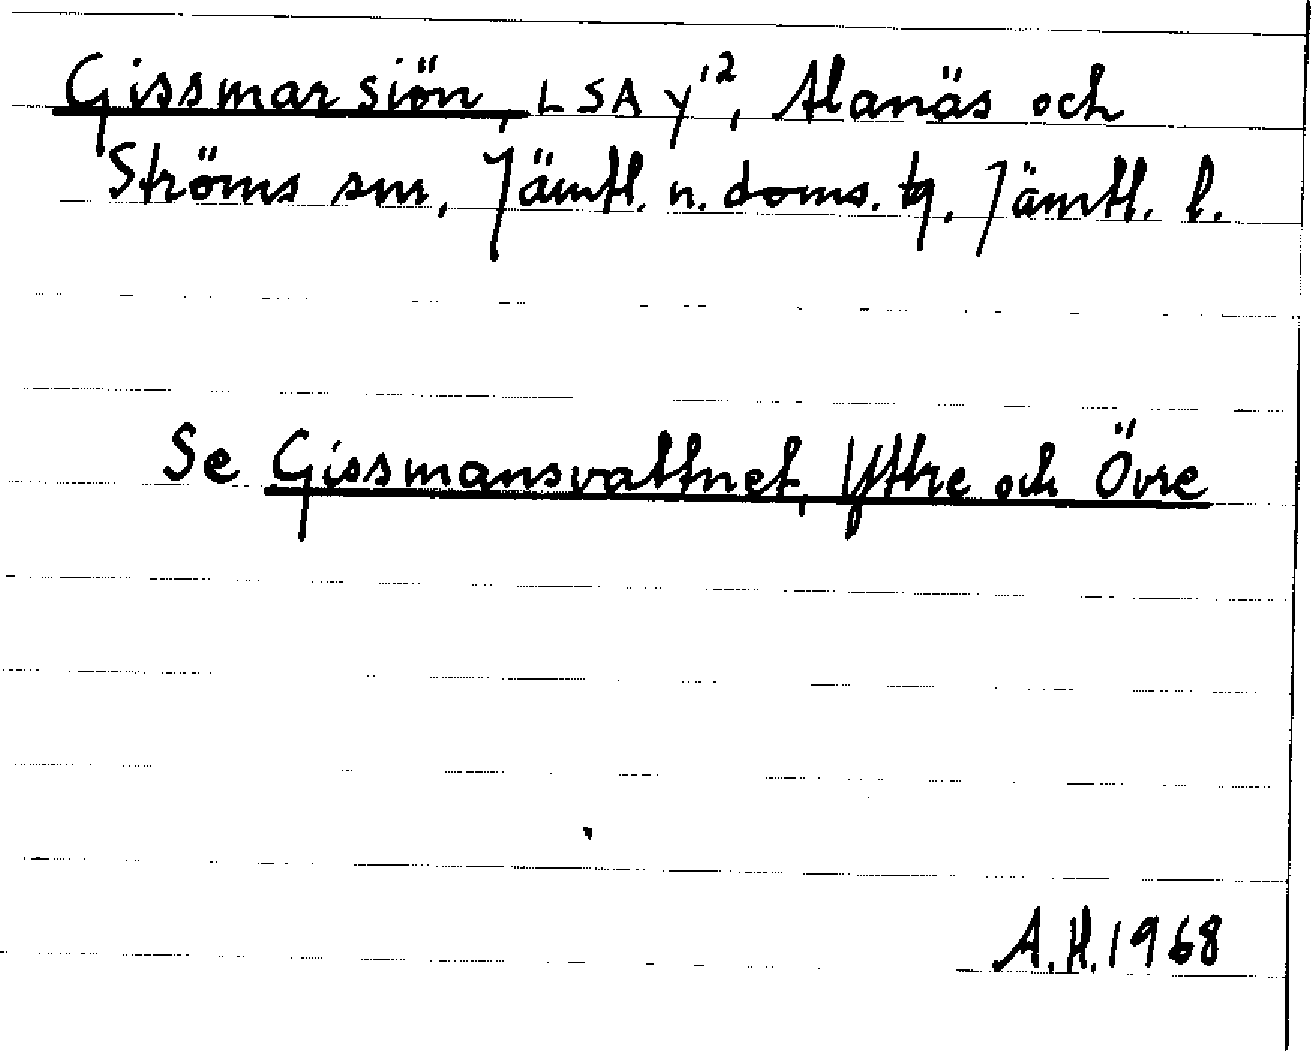 Gissmar siön, LSA Y'², Alanäs och
Ströms sm, Jämtl. n. doms. tg. Jämtl. l.
Se Gissmansvattnet, Yttre och Övre
A.H. 1968